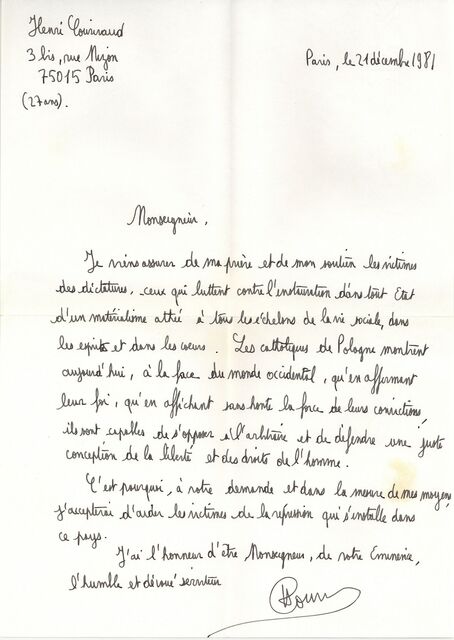 Henri Couraud
3 bis, rue Mizon
75015 Paris
(27 ans).
Paris, le 21 décembre 1981
Monseigneur,
Je viens assurer de ma prière et de mon soutien les victimes
des dictatures, ceux qui luttent contre l'instauration dans tout Etat
d'un matérialisme athée à tous les échelons de la vie sociale, dans
les esprits et dans les coeurs. Les catholiques de Pologne montrent
aujourd'hui, à la face du monde occidental, qu'en affirmant
leur foi, qu'en affichant sans honte la force de leurs convictions,
ils sont capables de s'opposer à l'arbitraire et de défendre une juste
conception de la liberté et des droits de l'homme.
C'est pourquoi, à votre demande et dans la mesure de mes moyens
j'accepterai d'aider les victimes de la répression qui s'installe dans
ce pays.
J'ai l'honneur d'être Monseigneur, de votre Eminence,
l'humble et dévoué serviteur